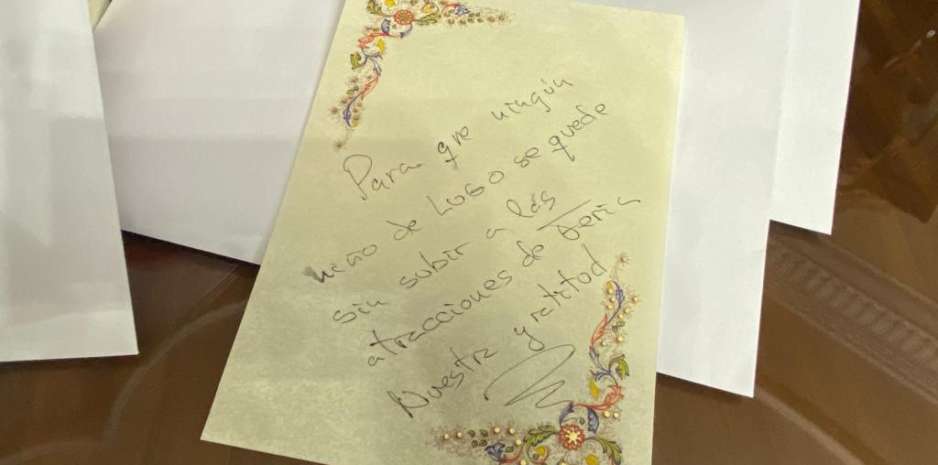 Para que ningún
niño de LUGO se quede
sin subir a las
atracciones de feria
Nuestra gratitud